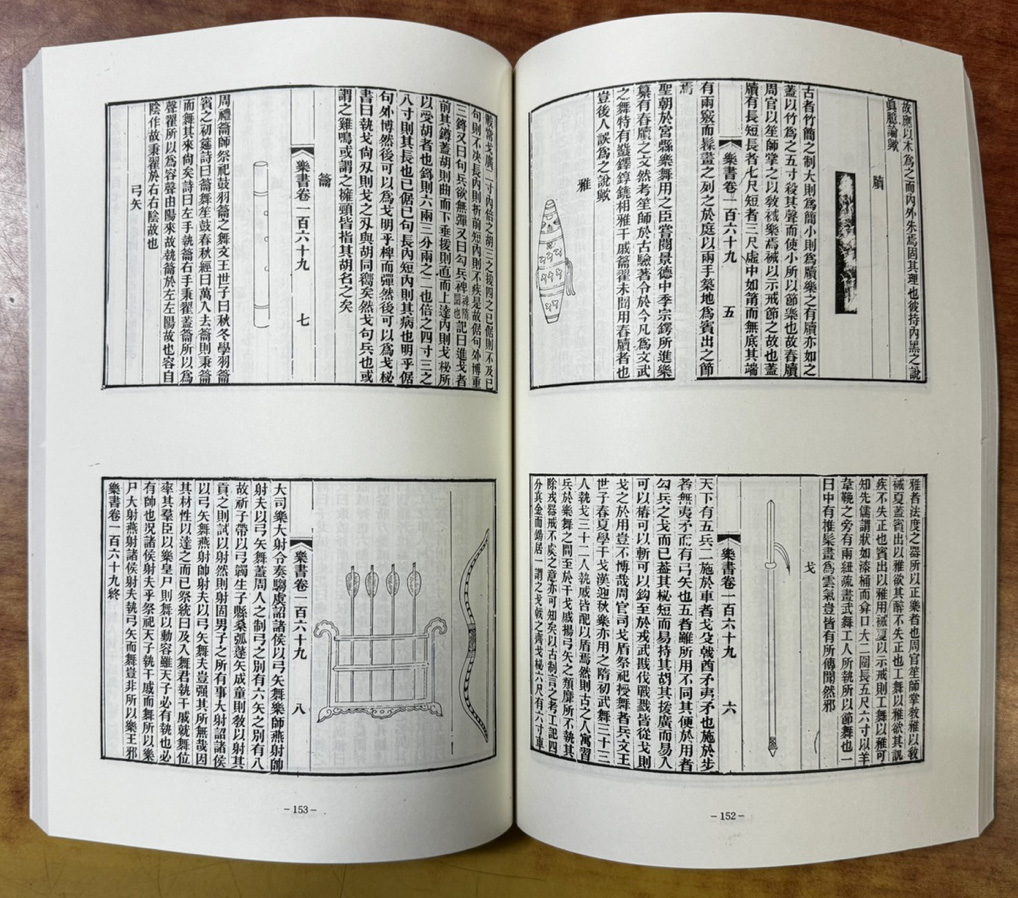 故應以木爲之而內外朱焉固其理也彼持內黑之說
眞臆論歟
牘
古者竹簡之制大則爲簡小則爲牘樂之有牘亦如之
蓋以竹爲之五寸殺其聲而使小所以節樂也故舂牘
周官以笙師掌之以敎祴樂焉祴以示戒節之故也蓋
牘有長短長者七尺短者三尺虛中如筩而無底其端
樂書卷一百六十九 五
有兩竅而髹畫之列之於庭以兩手築地爲賓出之節
焉
聖朝於宮縣樂舞用之臣嘗閱景德中季宗諤所進樂
纂有舂牘之文然考笙師於古驗著令於今凡爲文武
之舞特有鼗鐸錞鐃相雅干戚籥翟未聞用舂牘者也
豈後人誤爲之說歟
雅
雅者法度之器所以正樂者也周官笙師掌敎雅以敎
祴夏蓋賓出以雅欲其醉不失正也工舞以雅欲其訊
疾不失正也賓出以雅用祴夏以示戒則工舞以雅可
知先儒謂狀如漆桶而弇口大二圍長五尺六寸以羊
韋鞔之旁有兩紐疏畫武舞工人所執所以節舞也一
曰中有椎髹畫爲雲氣豈皆有所傳聞然邪
戈
樂書卷一百六十九 六
天下有五兵二施於車者戈殳戟酋矛夷矛也施於步
者無夷矛而有弓矢也五者雖所用不同其便於用者
勾兵之戈而已蓋其柲短而易持其胡其援廣而易入
可以樁可以斬可以鈎至於戎戟戕伐戰戮皆從戈則
戈之於用豈不博哉周官司戈盾祭祀授舞者兵文王
世子春夏學干戈漢迎秋樂亦用之隋初武舞三十二
人執戈三十二人執戚皆配以盾焉然則古之人寓習
兵於樂舞之間至於干戈戚揚弓矢之類靡所不執其
除戎器戒不虞之意亦可知矣以古制言之考工記四
分其金而錫居一謂之戈戟之齊戈柲六尺有六寸車
戟常戈廣二寸內倍之胡三之援四之已倨則不及已
句則不決長內則折前短內則不疾是故倨句外博重
三鋝又曰句兵欲無彈又曰勾兵椑記曰進戈者
前其鐏蓋胡則曲而下垂援則直而上達內則戈柲所
以受胡者也鋝則六兩三分兩之二也倍之四寸三之
八寸則其長也已倨已句長內短內則其病也明乎倨
句外博然後可以爲戈明乎椑而彈然後可以爲戈柲
書曰執戈尙刃則戈之刃與胡同嚮矣然戈句兵也或
謂之雞鳴或謂之擁頸皆指其胡名之矣
籥
樂書卷一百六十九 七
周禮籥師祭祀鼓羽籥之舞文王世子曰秋冬學羽籥
賓之初筵詩曰籥舞笙鼓春秋經曰萬人去籥則秉籥
而舞其來尙矣詩曰左手執籥右手秉翟蓋籥所以爲
聲翟所以爲容聲由陽來故執籥於左左陽故也容自
陰作故秉翟於右右陰故也
弓矢
樂書卷一百六十九 八
大司樂大射令奏騶虞詔諸侯以弓矢舞樂師燕射帥
射夫以弓矢舞蓋周人之制弓之別有六矢之別有八
故祈子帶以弓韣生子縣桑弧蓬矢成童則敎以射其
貢之則試以射然則射固男子之所有事大射詔諸侯
以弓矢舞燕射帥射夫以弓矢舞夫豈强其所無哉因
其材性以達之而已祭統曰及入舞君執干戚就舞位
率其羣臣以樂皇尸則舞以動容雖天子必有執也必
有帥也况諸侯射夫乎祭祀天子執干戚而舞所以樂
尸大射燕射諸侯射夫執弓矢而舞豈非所以樂王邪
樂書卷一百六十九終
－152－
－153－